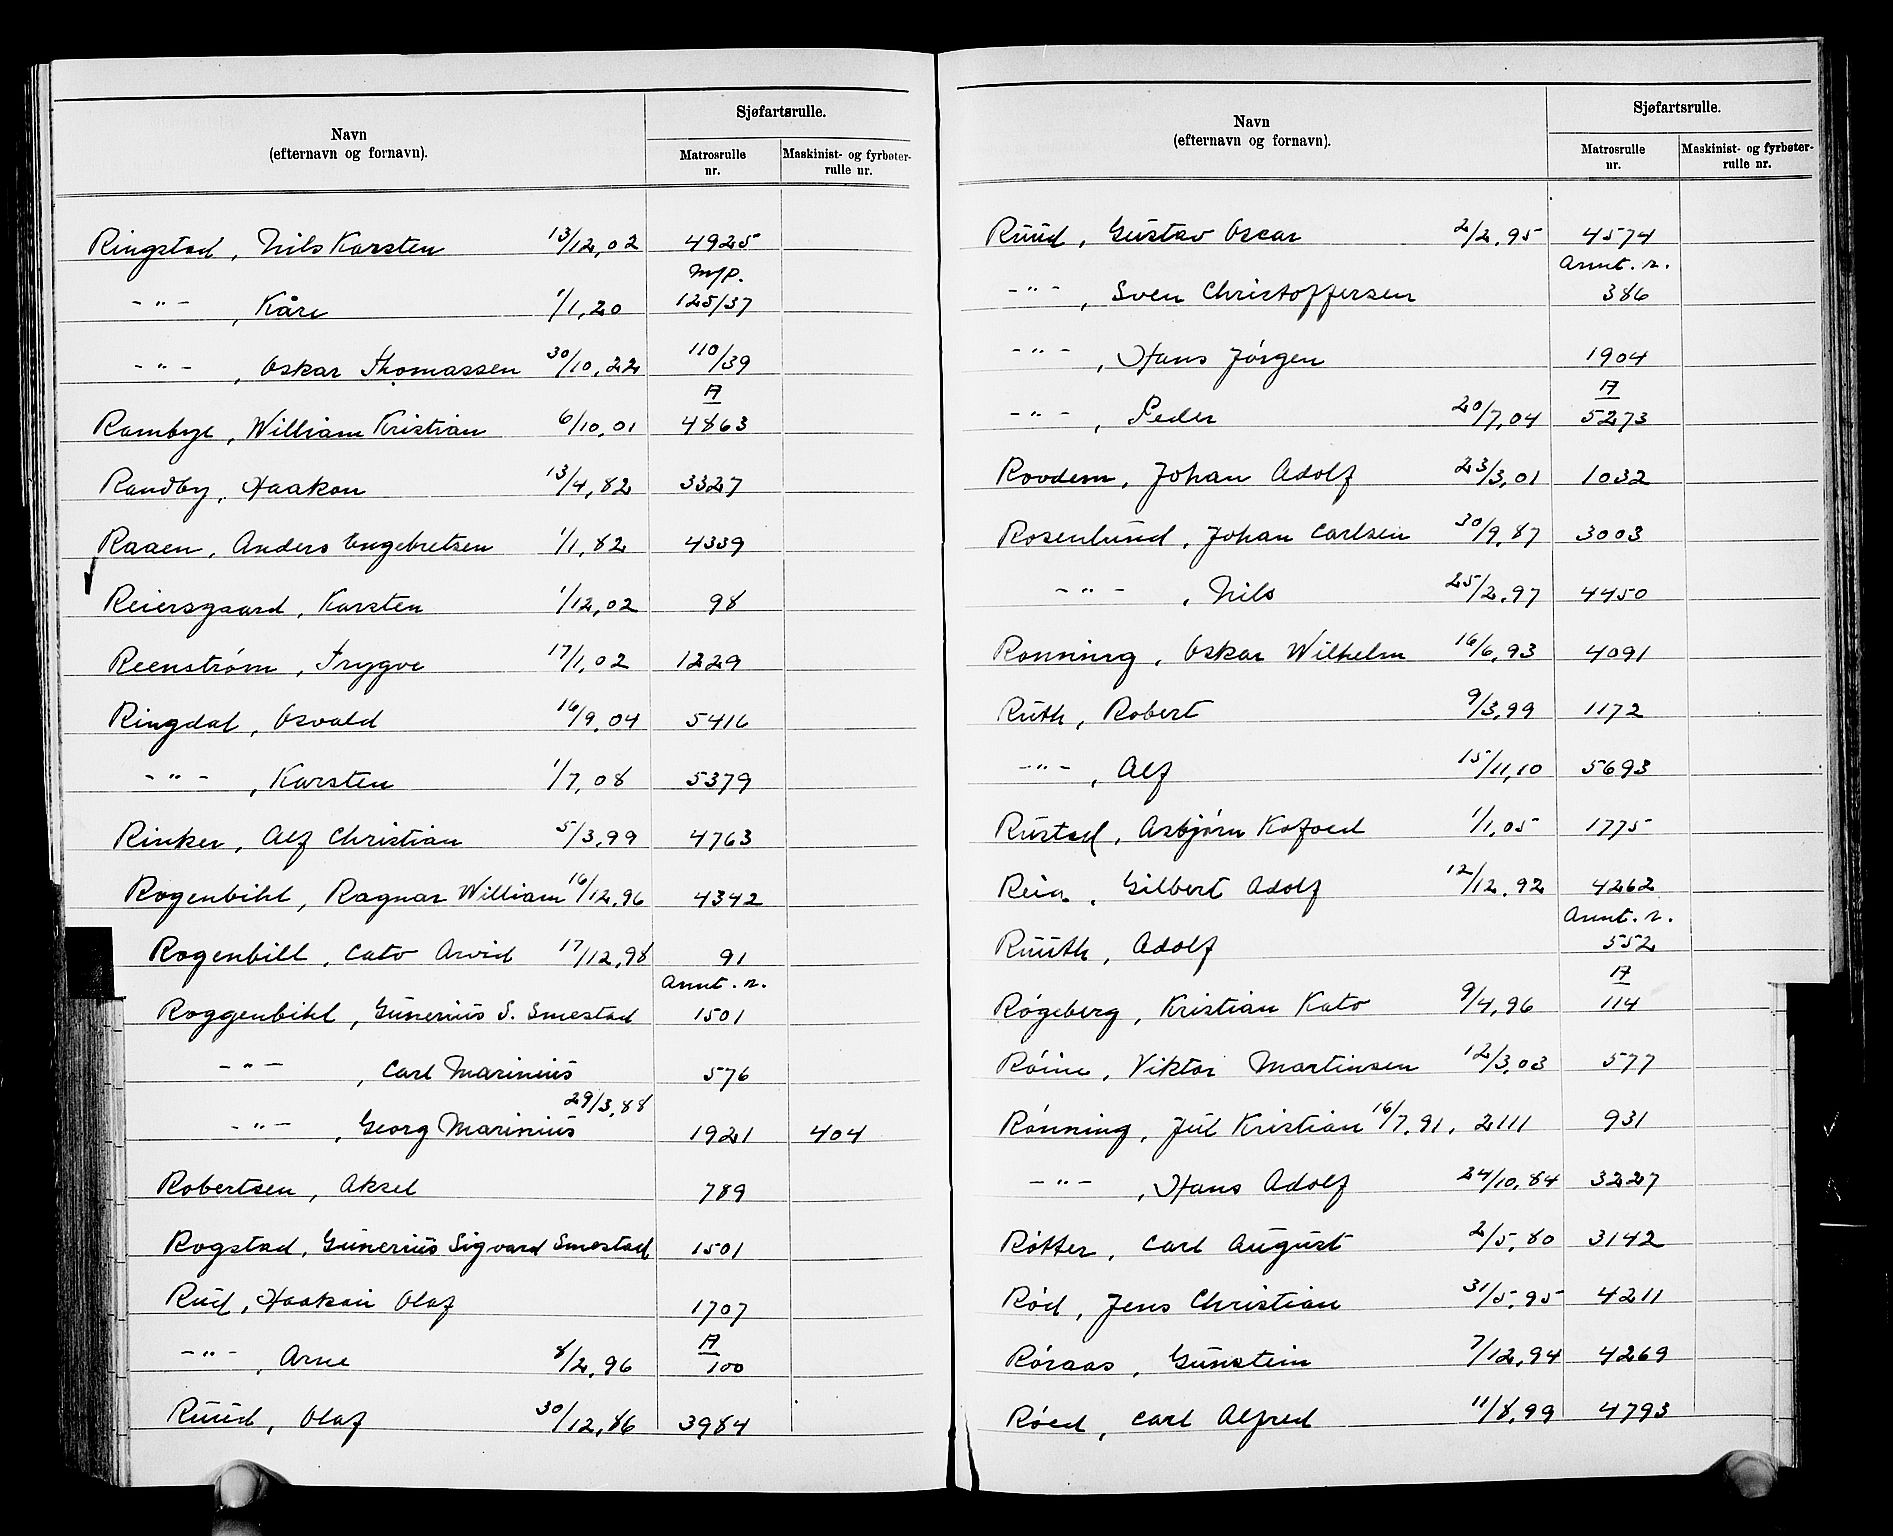 Navn
(efternavn og fornavn).
Sjøfartsrulle.
Matrosrulle nr.
Maskinist- og fyrbøter-rulle nr.
Ringstad, Nils Karsten 13/12,02 4925
-"- , Kåre 1/1,20 m/p. 125/37
-"- , Oskar Thomassen 30/10,22 110/39
Rambye, William Kristian 6/10,01 A 4863
Randby, Haakon 13/4,82 3327
Raaen, Anders Engebretsen 1/1,82 4339
Reiersgaard, Karsten 1/12,02 98
Reenstrøm, Trygve 17/1,02 1229
Ringdal, Osvald 16/9,04 5416
-"- , Karsten 1/7,08 5379
Rinker, Alf Christian 5/3,99 4763
Rogenbihl, Ragnar William 16/12,96 4342
Rogenbill, Cato Arvid 17/12,98 91
Roggenbihl, Gunerius S. Smestad Annt. r. 1501
-"- , Carl Marinius 576
-"- , Georg Marinius 29/3,88 1921 404
Robertsen, Aksel 789
Rogstad, Gunerius Sigvard Smestad 1501
Rud, Haakon Olaf 1707
-"- , Arne 8/2,96 A 100
Ruud, Olaf 30/12,86 3984
Navn
(efternavn og fornavn).
Sjøfartsrulle.
Matrosrulle nr.
Maskinist- og fyrbøter-rulle nr.
Ruud, Gustav Oscar 2/2,95 4574
-"- , Sven Christoffersen Annt. r. 386
-"- , Hans Jørgen 1904
-"- , Peder 20/7,04 A 5273
Rovdem, Johan Adolf 23/3,01 1032
Rosenlund, Johan Carlsen 30/9,87 3003
-"- , Nils 25/2,97 4450
Ronning, Oskar Wilhelm 16/6,93 4091
Ruth, Robert 9/3,99 1172
-"- , Alf 15/11,10 5693
Rustad, Asbjørn Kofoed 1/1,05 1775
Reia, Gilbert Adolf 12/12,92 4262
Ruuth, Adolf Annt. r. 552
Røgeberg, Kristian Kato 9/4,96 A 114
Røine, Viktor Martinsen 12/3,03 577
Rønning, Jul Kristian 16/7,91, 2111 931
-"- , Hans Adolf 24/10,84 3227
Røtter, Carl August 2/5,80 3142
Rød, Jens Christian 31/5,95 4211
Røraas, Gunstein 7/12,94 4269
Røed, Carl Alfred 11/8,99 4793